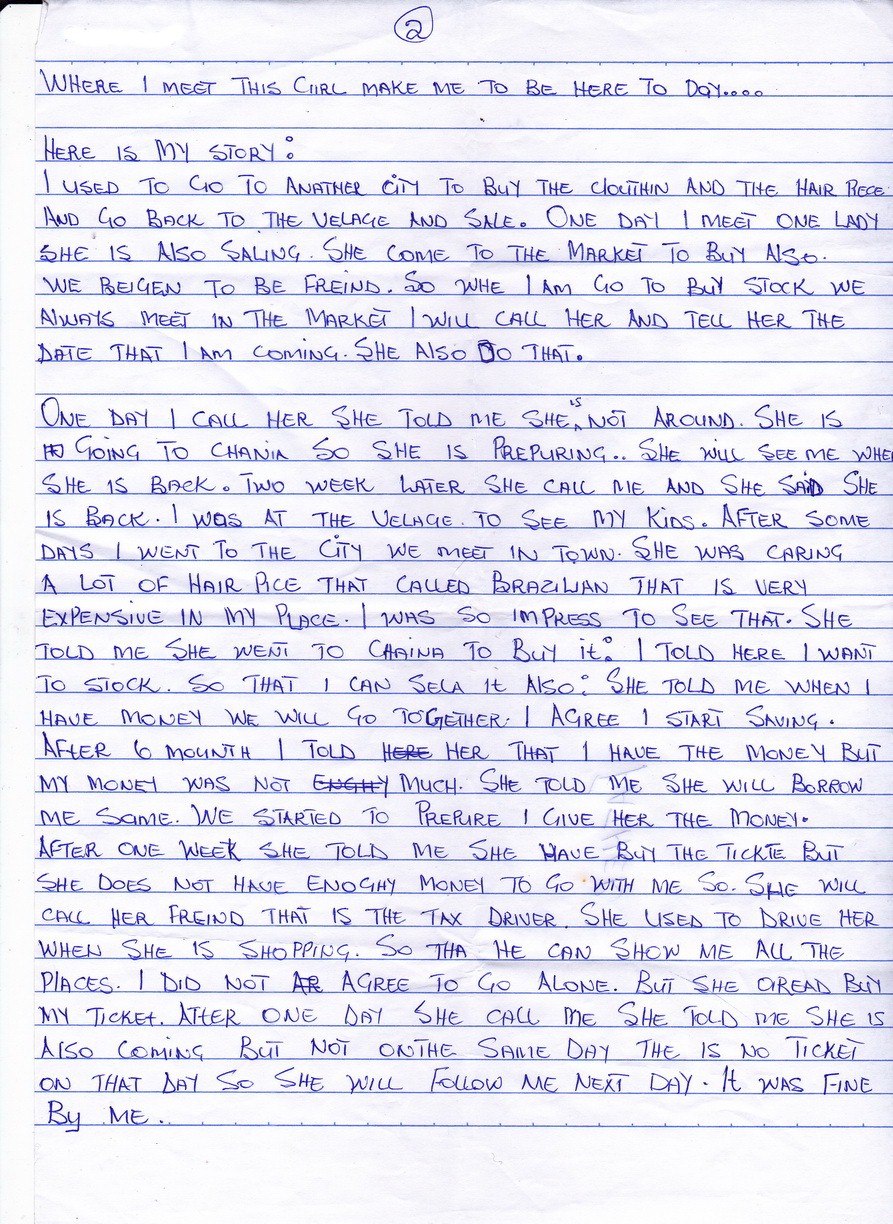 2
WHERE I MEET THIS GIRL MAKE ME TO BE HERE TO DAY....
HERE IS MY STORY:
I USED TO GO TO ANATHER CITY TO BUY THE CLOUTHIN AND THE HAIR PIECE
AND GO BACK TO THE VELAGE AND SALE. ONE DAY I MEET ONE LADY
SHE IS ALSO SALING. SHE COME TO THE MARKET TO BUY ALSO.
WE BEIGEN TO BE FREIND. SO WHE I AM GO TO BUY STOCK WE
ALWAYS MEET IN THE MARKET I WILL CALL HER AND TELL HER THE
DATE THAT I AM COMING. SHE ALSO DO THAT.
ONE DAY I CALL HER SHE TOLD ME SHE IS NOT AROUND. SHE IS
GOING TO CHANIA SO SHE IS PREPURING.. SHE WILL SEE ME WHEN
SHE IS BACK. TWO WEEK LATER SHE CALL ME AND SHE SAID SHE
IS BACK. I WAS AT THE VELAGE. TO SEE MY KIDS. AFTER SOME
DAYS I WENT TO THE CITY WE MEET IN TOWN. SHE WAS CARING
A LOT OF HAIR PICE THAT CALLED BRAZILIAN THAT IS VERY
EXPENSIVE IN MY PLACE. I WAS SO IMPRESS TO SEE THAT. SHE
TOLD ME SHE WENT TO CHAINA TO BUY it. I TOLD HERE I WANT
TO STOCK. SO THAT I CAN SELA It ALSO: SHE TOLD ME WHEN I
HAVE MONEY WE WILL GO TOGETHER. I AGREE I START SAVING.
AFTER 6 MOUNTH I TOLD HERE HER THAT I HAVE THE MONEY BUT
MY MONEY WAS NOT ENGHY MUCH. SHE TOLD ME SHE WILL BORROW
ME SOME. WE STARTED TO PREPURE I GIVE HER THE MONEY.
AFTER ONE WEEK SHE TOLD ME SHE HAVE BUY THE TICKTE BUT
SHE DOES NOT HAVE ENOGHY MONEY TO GO WITH ME SO. SHE WILL
CALL HER FREIND THAT IS THE TAX DRIVER. SHE USED TO DRIVE HER
WHEN SHE IS SHOPPING. SO THA HE CAN SHOW ME ALL THE
PLACES. I DID NOT AR AGREE TO GO ALONE. BUT SHE OREAD BUY
MY TICKET. AFTER ONE DAY SHE CALL ME SHE TOLD ME SHE IS
ALSO COMING BUT NOT ONTHE SAME DAY THE IS NO TICKET
ON THAT DAY SO SHE WILL FOLLOW ME NEXT DAY. It WAS FINE
By ME.